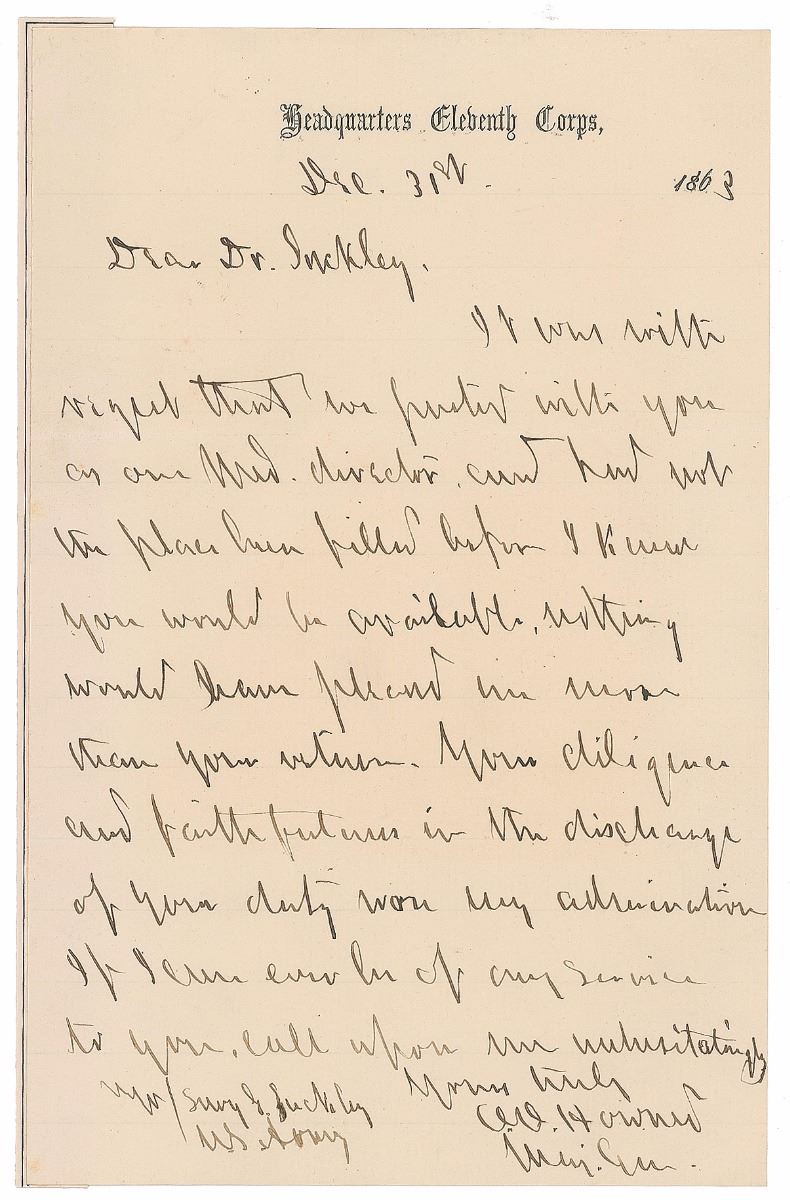 Headquarters Eleventh Corps,
Dec. 31st. 1863
Dear Dr. Suckley.
It was with
regret that we parted with you
as our Med. director, and had not
the place been filled before I knew
you would be available, nothing
would have pleased me more
than your return. Your diligence
and faithfulness in the discharge
of your duty won my admiration
If I can ever be of any service
to you, call upon me unhesitatingly
Yours truly
O.O. Howard
Maj. Gen.
Surg G. Suckley
U.S. Army